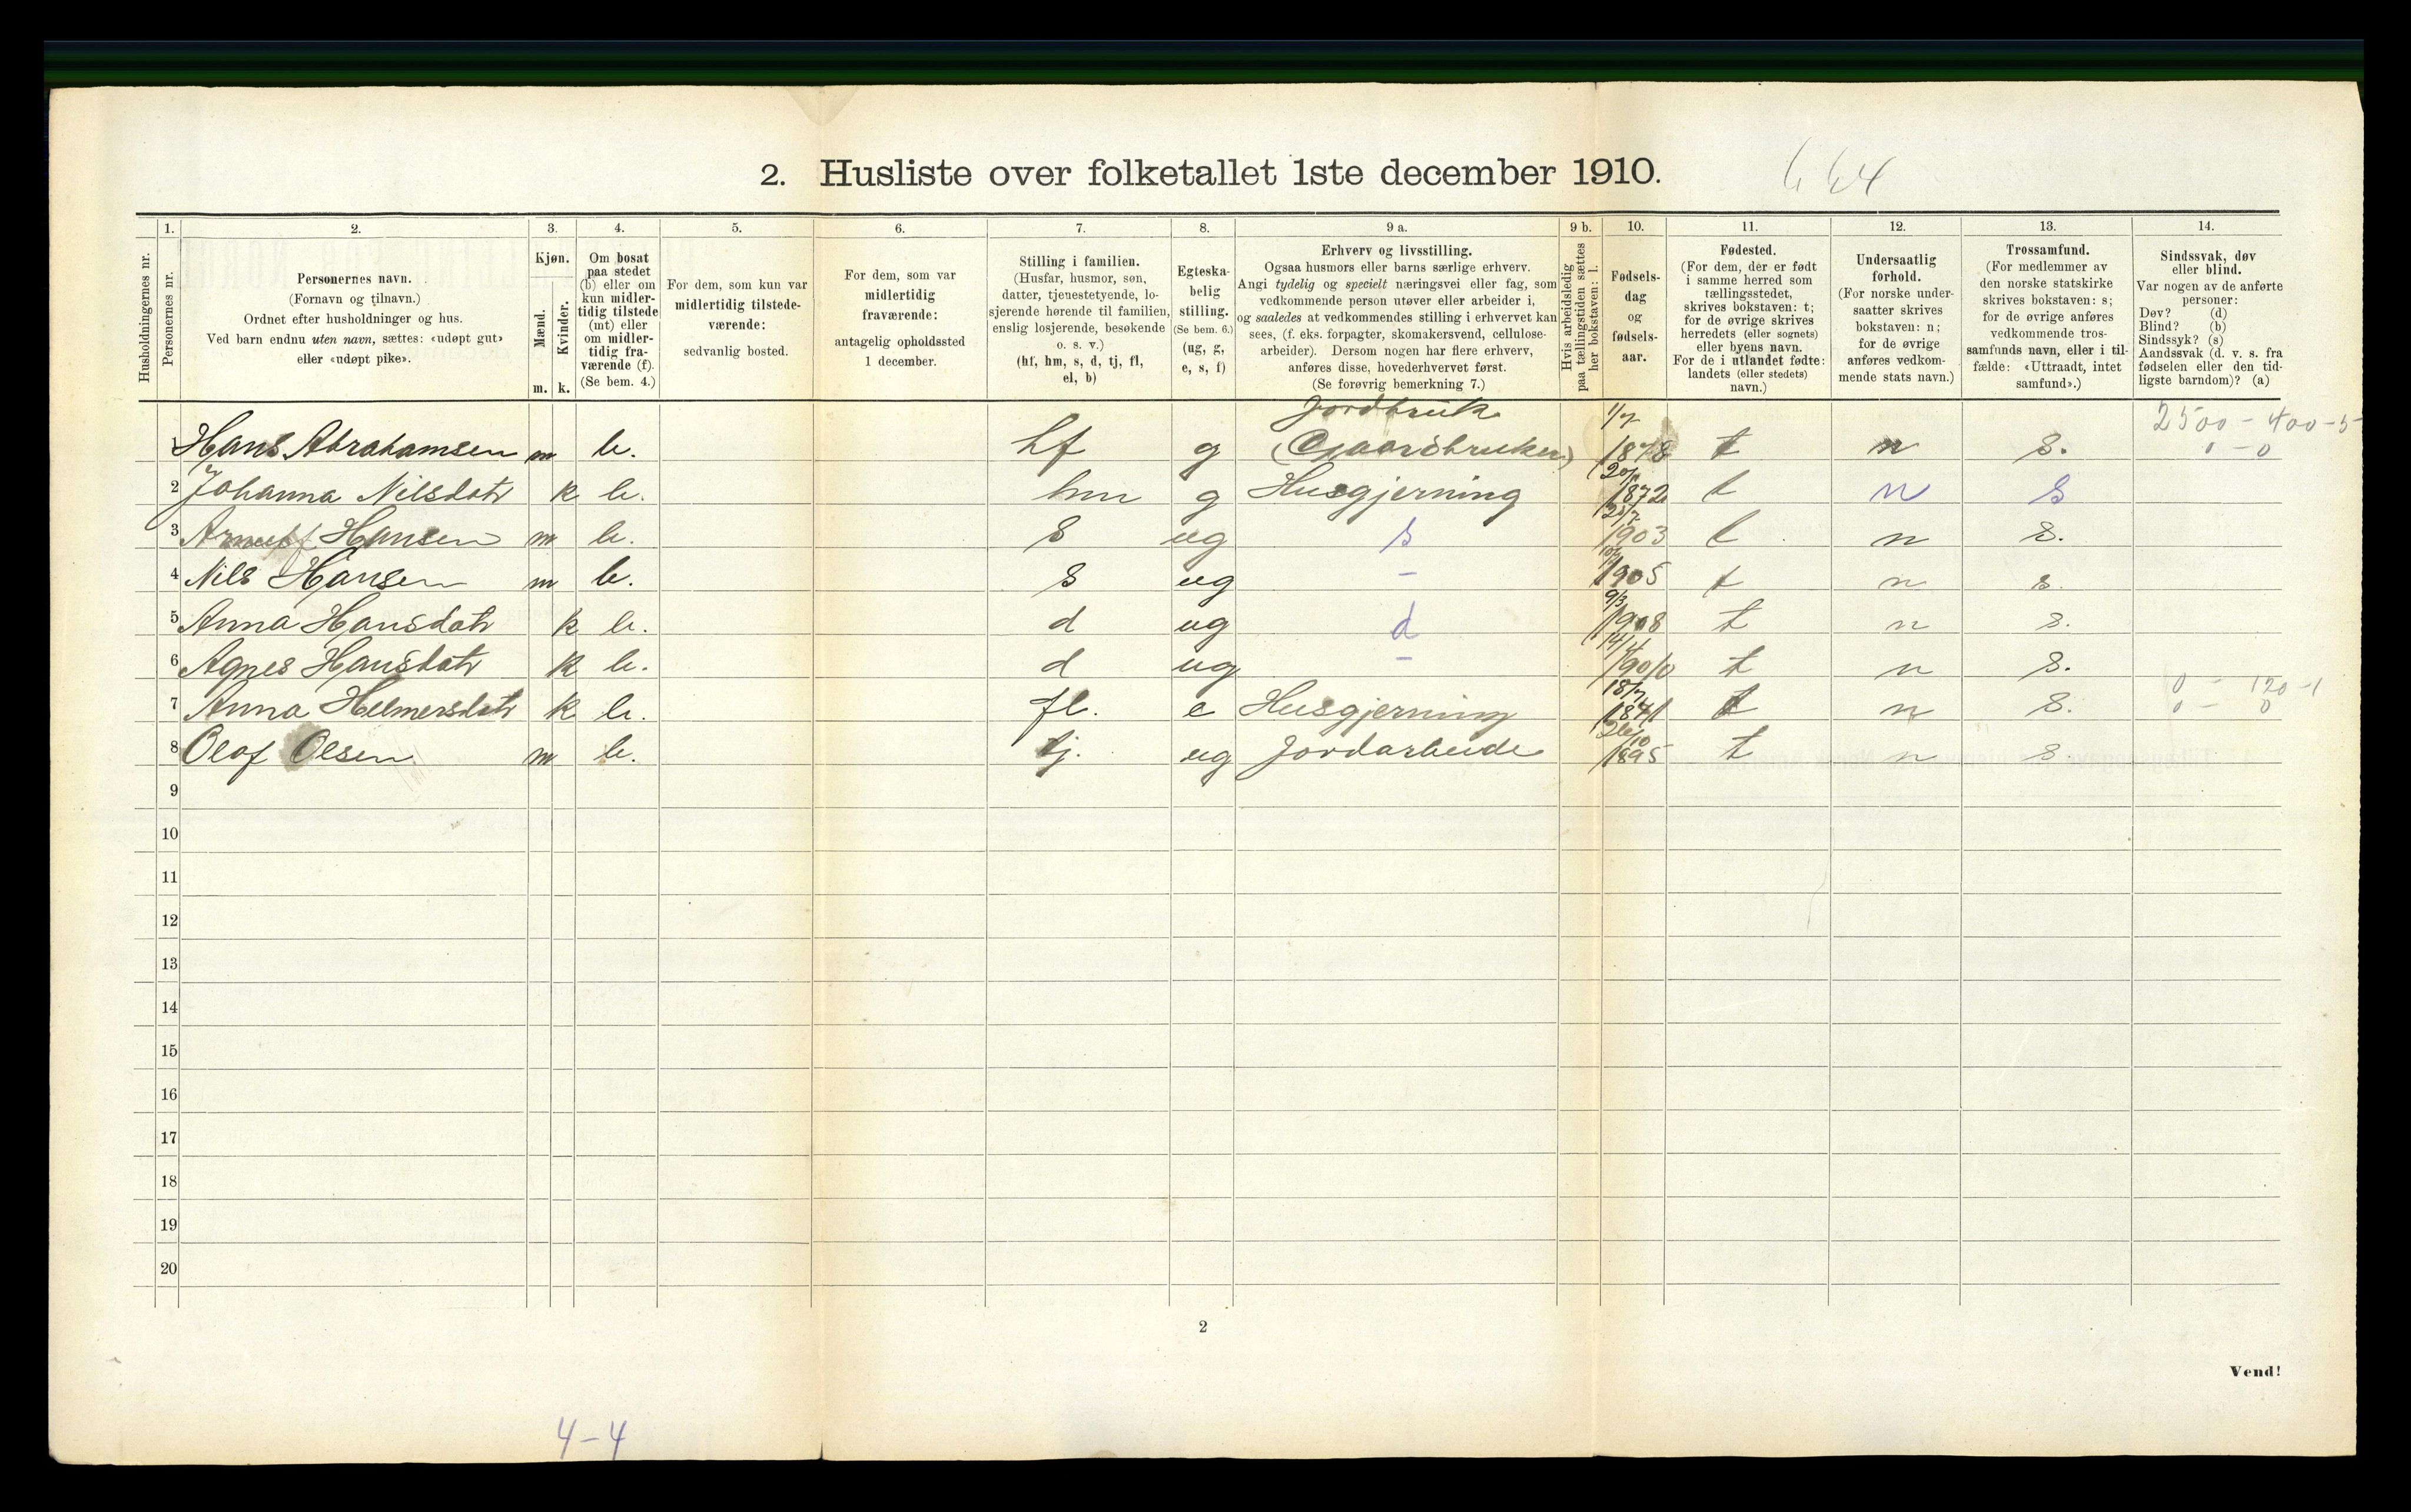 2. Husliste over folketallet 1ste december 1910.
1. 2. 3. 4. 5. 6. 7. 8. 9 a. 9 b. 10. 11. 12. 13. 14.
Husholdningernes nr.
Personernes nr.
Personernes navn.
(Fornavn og tilnavn.)
Ordnet efter husholdninger og hus.
Ved barn endnu uten navn, sættes: «udøpt gut»
eller «udøpt pike».
Kjøn.
Mænd.
Kvinder.
m. k.
Om bosat
paa stedet
(b) eller om
kun midler-
tidig tilstede
(mt) eller
om midler-
tidig fra-
værende (f).
(Se bem. 4.)
For dem, som kun var
midlertidig tilstede-
værende:
sedvanlig bosted.
For dem, som var
midlertidig
fraværende:
antagelig opholdssted
1 december.
Stilling i familien.
(Husfar, husmor, søn,
datter, tjenestetyende, lo-
sjerende hørende til familien,
enslig losjerende, besøkende
o. s. v.)
(hf, hm, s, d, tj, fl,
el, b)
Egteska-
belig
stilling.
(Se bem. 6.)
(ug, g,
e, s, f)
Erhverv og livsstilling.
Ogsaa husmors eller barns særlige erhverv.
Angi tydelig og specielt næringsvei eller fag, som
vedkommende person utøver eller arbeider i,
og saaledes at vedkommendes stilling i erhvervet kan
sees, (f. eks. forpagter, skomakersvend, cellulose-
arbeider). Dersom nogen har flere erhverv,
anføres disse, hovederhvervet først.
(Se forøvrig bemerkning 7.)
Hvis arbeidsledig
paa tællingstiden sættes
her bokstaven: l.
Fødsels-
dag
og
fødsels-
aar.
Fødested.
(For dem, der er født
i samme herred som
tællingsstedet,
skrives bokstaven: t;
for de øvrige skrives
herredets (eller sognets)
eller byens navn.
For de i utlandet fødte:
landets (eller stedets)
navn.)
Undersaatlig
forhold.
(For norske under-
saatter skrives
bokstaven: n;
for de øvrige
anføres vedkom-
mende stats navn.)
Trossamfund.
(For medlemmer av
den norske statskirke
skrives bokstaven: s;
for de øvrige anføres
vedkommende tros-
samfunds navn, eller i til-
fælde: «Uttraadt, intet
samfund».)
Sindssvak, døv
eller blind.
Var nogen av de anførte
personer:
Døv? (d)
Blind? (b)
Sindssyk? (s)
Aandssvak (d. v. s. fra
fødselen eller den tid-
ligste barndom)? (a)
Jordbruk 1/7 2500 - 400 - 5
Hans Abrahamsen m b. hf g (Gaardbruker) 1878 t n s. 0 - 0
2 Johanna Nilsdatr k b. hm g Husgjerning 1872 t n s
3 Hansen m b. s ug s 1903 t n s.
4 Nils Hansen m b. s ug - 1905 t n s.
5 Anna Hansdatr k b. d ug d 9/3 1908 t n s.
6 Agnes Hansdatr k b. d ug - 1910 t n s.
7 Anna Helmersdatr k b. fl. e Husgjerning 18/7 1841 t n s. 0 - 120 - 1
0 - 0
8 Olaf Olsen m b. tj. ug Jordarbeide 1895 t n s.
9
10
11
12
13
14
15
16
17
18
19
20
2
Vend!
4-4